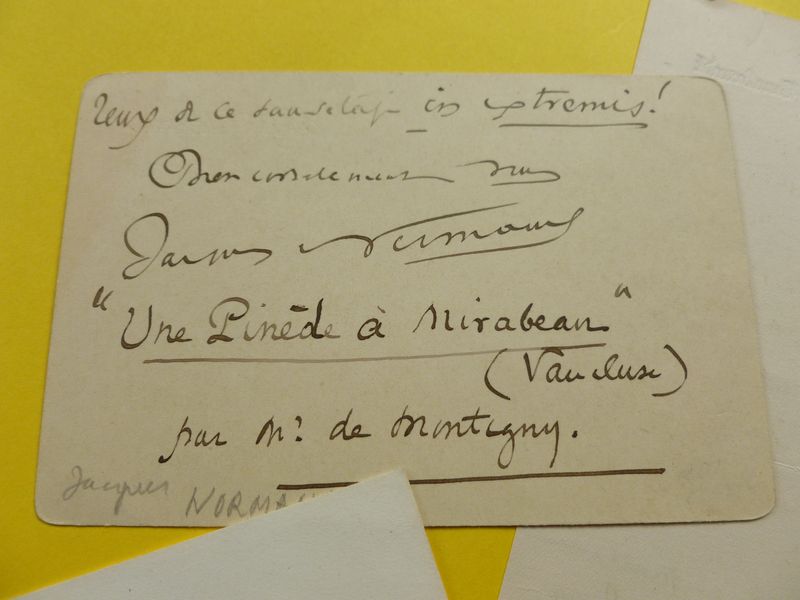 reux de ce sauvetage in extremis!
Bien cordialement vous
Jacques Normand
"Une Pinède à Mirabeau"
(Vaucluse)
par Mr. de Montigny.
Jacques NORMAN